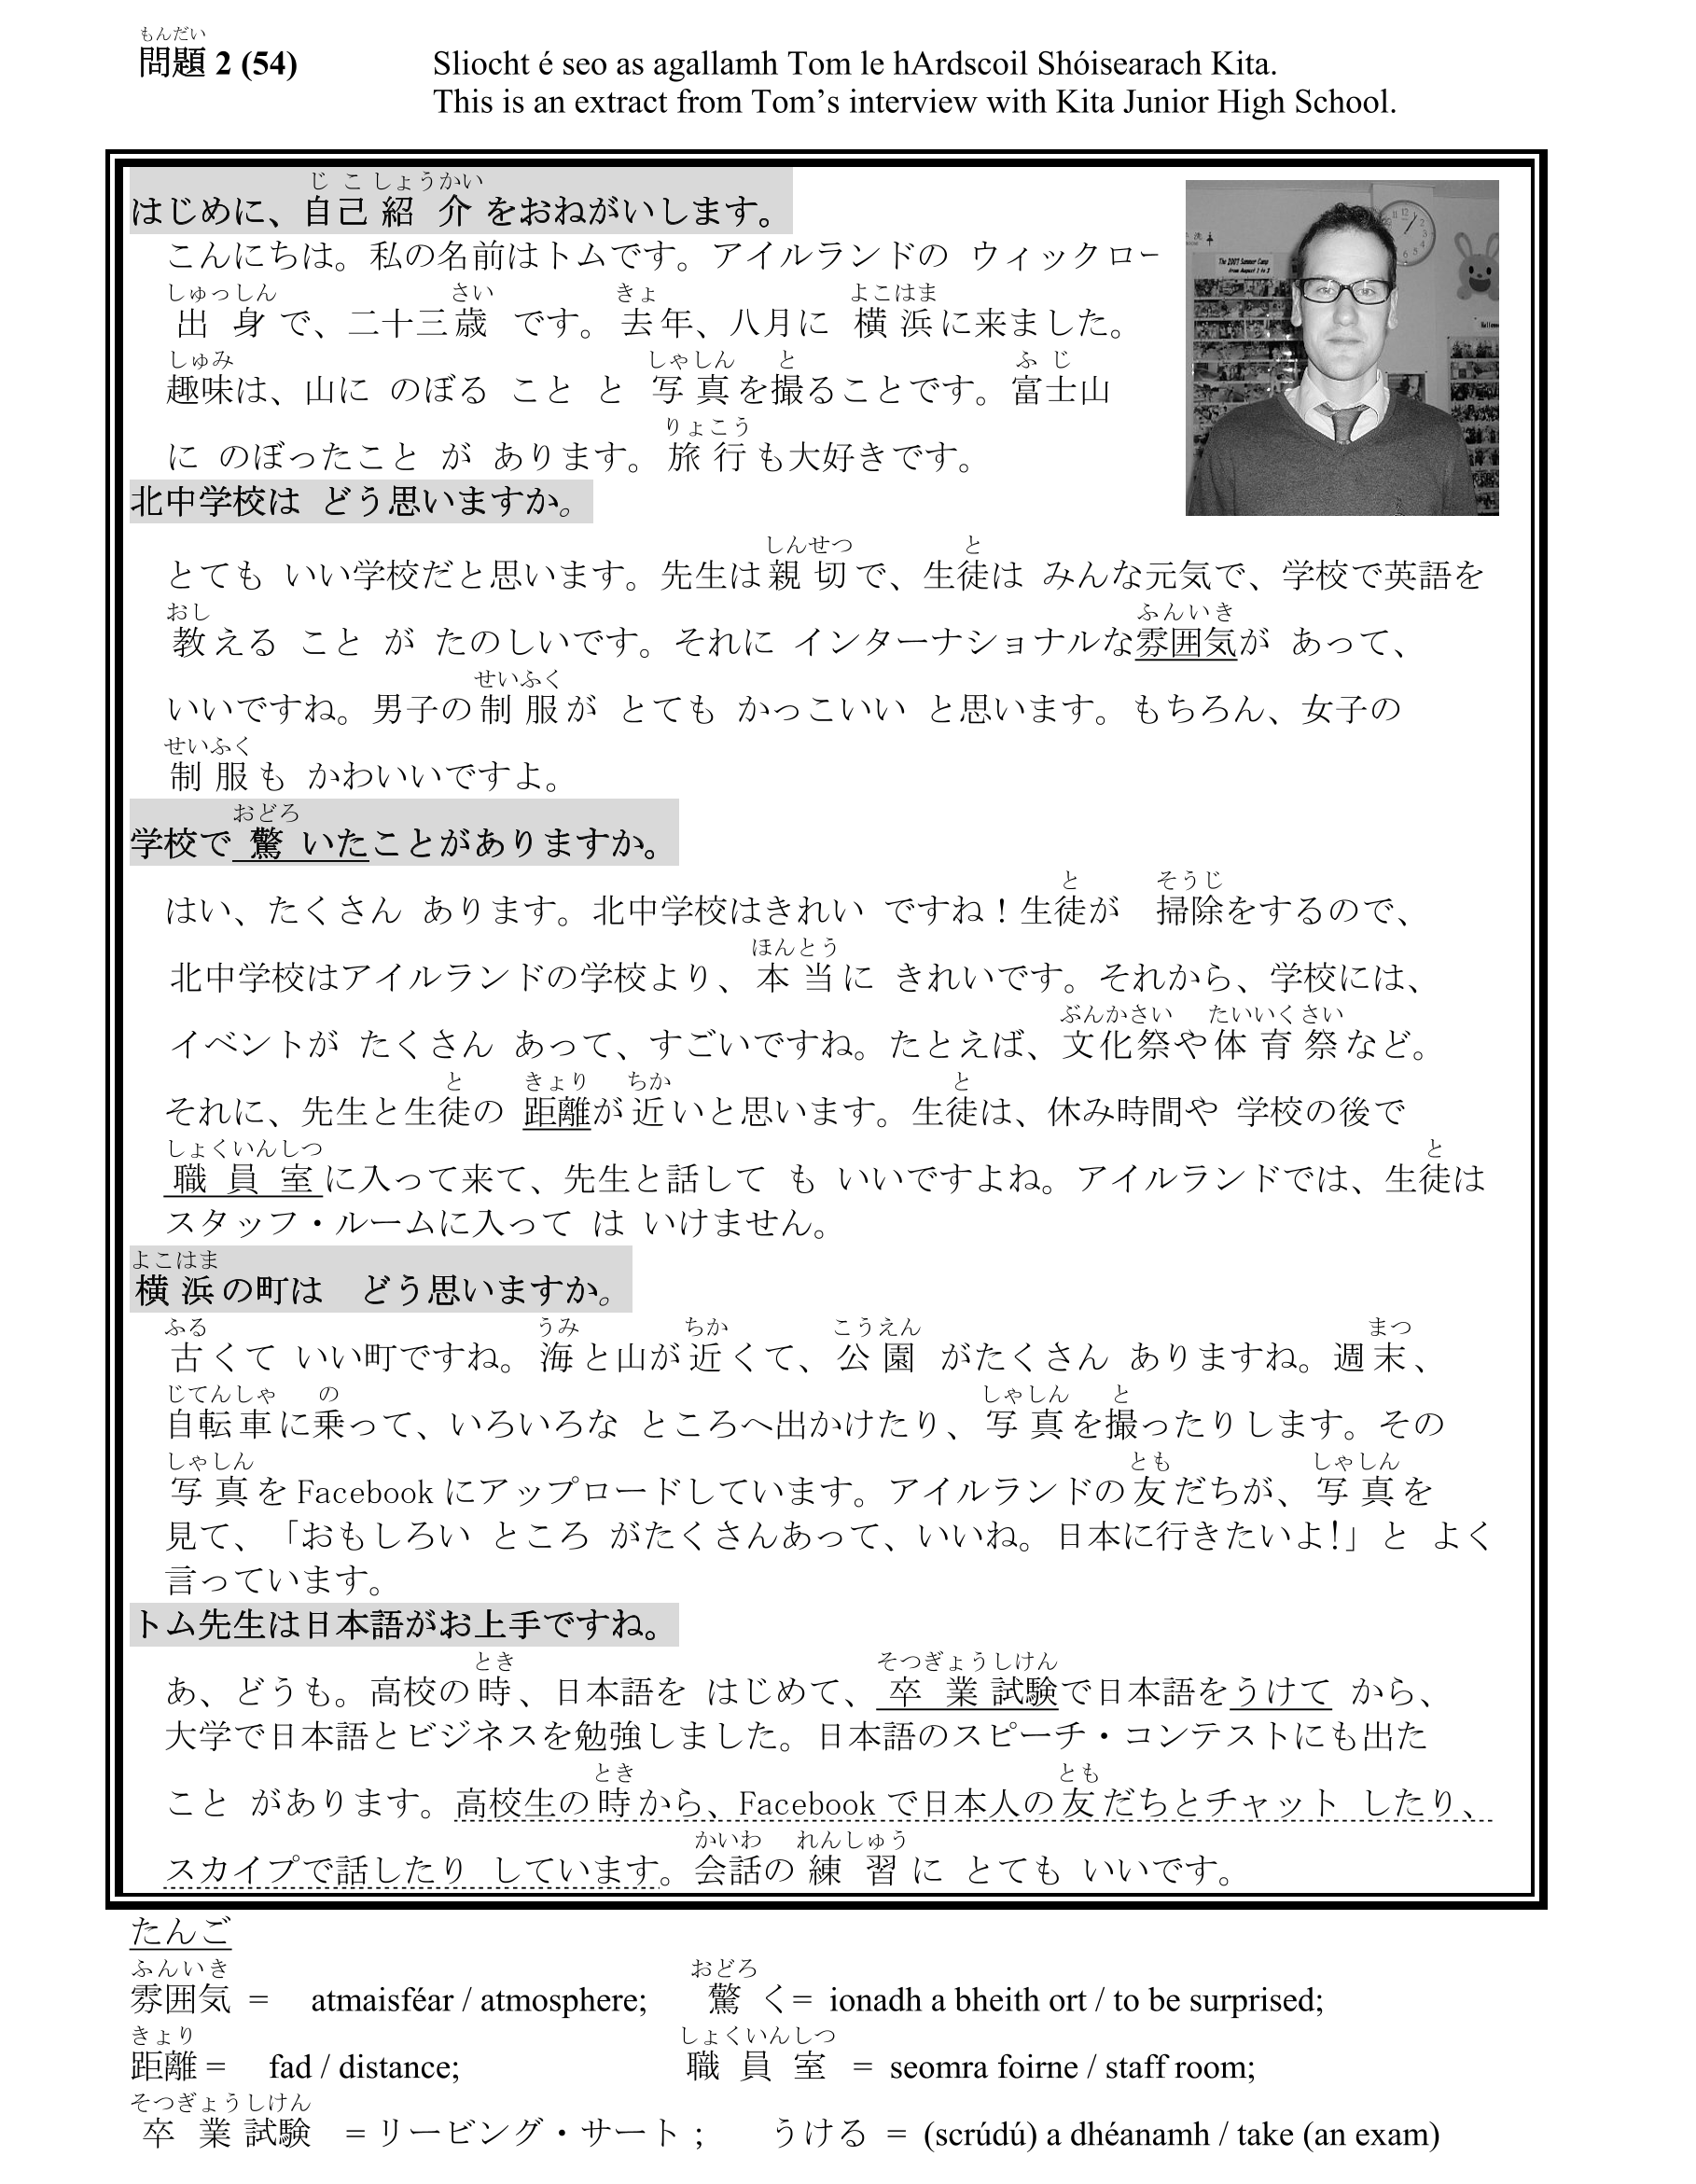 もんだい
問題 2 (54)
Sliocht é seo as agallamh Tom le hArdscoil Shóisearach Kita.
This is an extract from Tom’s interview with Kita Junior High School.
じこしょうかい
はじめに、自己紹介をおねがいします。
こんにちは。私の名前はトムです。アイルランドの ウィックロー
しゅっしん さい きょ よこはま
出身で、二十三歳 です。去年、八月に 横浜に来ました。
しゅみ しゃしん と ふじ
趣味は、山に のぼる こと と 写真を撮ることです。富士山
りょこう
に のぼったこと が あります。旅行も大好きです。
北中学校は どう思いますか。
しんせつ と
とても いい学校だと思います。先生は親切で、生徒は みんな元気で、学校で英語を
おし ふんいき
教える こと が たのしいです。それに インターナショナルな雰囲気が あって、
せいふく
いいですね。男子の制服が とても かっこいい と思います。もちろん、女子の
せいふく
制服も かわいいですよ。
おどろ
学校で驚いたことがありますか。
と そうじ
はい、たくさん あります。北中学校はきれい ですね！生徒が 掃除をするので、
ほんとう
北中学校はアイルランドの学校より、本当に きれいです。それから、学校には、
ぶんかさい たいいくさい
イベントが たくさん あって、すごいですね。たとえば、文化祭や体育祭など。
と きょり ちか と
それに、先生と生徒の 距離が近いと思います。生徒は、休み時間や 学校の後で
しょくいんしつ と
職員室に入って来て、先生と話して も いいですよね。アイルランドでは、生徒は
スタッフ・ルームに入って は いけません。
よこはま
横浜の町は どう思いますか。
ふる うみ ちか こうえん まつ
古くて いい町ですね。海と山が近くて、公園 がたくさん ありますね。週末、
じてんしゃ の しゃしん と
自転車に乗って、いろいろな ところへ出かけたり、写真を撮ったりします。その
しゃしん とも しゃしん
写真を Facebook にアップロードしています。アイルランドの友だちが、写真を
見て、「おもしろい ところ がたくさんあって、いいね。日本に行きたいよ!」と よく
言っています。
トム先生は日本語がお上手ですね。
とき そつぎょうしけん
あ、どうも。高校の時、日本語を はじめて、卒業試験で日本語をうけて から、
大学で日本語とビジネスを勉強しました。日本語のスピーチ・コンテストにも出た
とき とも
こと があります。高校生の時から、Facebook で日本人の友だちとチャット したり、
かいわ れんしゅう
スカイプで話したり しています。会話の練習に とても いいです。
たんご
ふんいき おどろ
雰囲気 = atmaisféar / atmosphere; 驚く= ionadh a bheith ort / to be surprised;
きょり しょくいんしつ
距離 = fad / distance; 職員室 = seomra foirne / staff room;
そつぎょうしけん
卒業試験 = リービング・サート ; うける = (scrúdú) a dhéanamh / take (an exam)